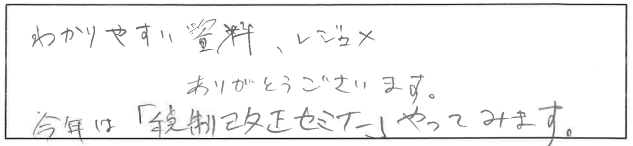 わかりやすい資料、レジュメ
ありがとうございます。
今年は「税制改正セミナー」やってみます。